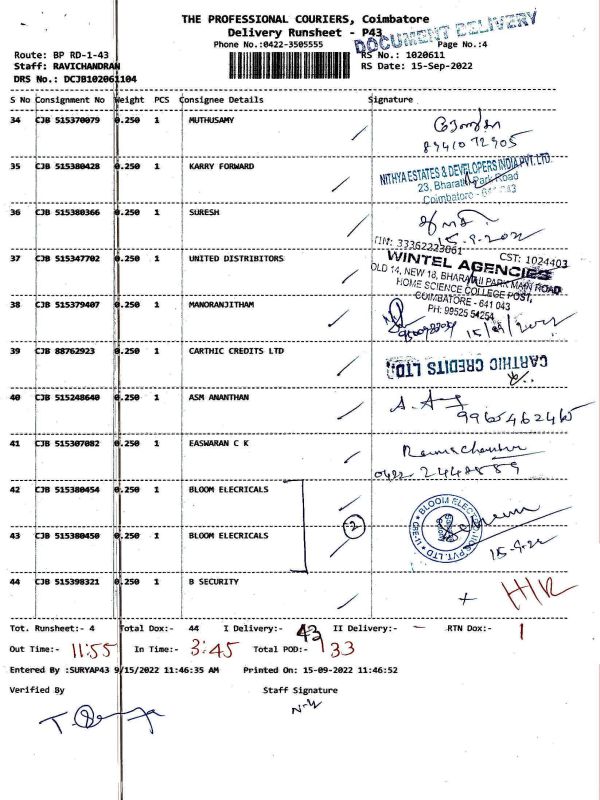 THE PROFESSIONAL COURIERS, Coimbatore
Delivery Runsheet - P43
DOCUMENT DELIVERY
Phone No.:0422-3505555 Page No.:4
Route: BP RD-1-43 RS No.: 1020611
Staff: RAVICHANDRAN RS Date: 15-Sep-2022
DRS No.: DCJB102061104
S No Consignment No Weight PCS Consignee Details Signature
34 CJB 515370079 0.250 1 MUTHUSAMY
8941072905
35 CJB 515380428 0.250 1 KARRY FORWARD
NITHYA ESTATES & DEVELOPERS INDIA PVT. LTD.
23, Bharathi Park Road
Coimbatore - 641 043
36 CJB 515380366 0.250 1 SURESH
15.9.2022
37 CJB 515347702 0.250 1 UNITED DISTRIBITORS
TIN: 33362223061 CST: 1024403
WINTEL AGENCIES
OLD 14, NEW 18, BHARATHI PARK MAIN ROAD
HOME SCIENCE COLLEGE POST,
COIMBATORE - 641 043
PH: 99525 54254
38 CJB 515379407 0.250 1 MANORANJITHAM
15/09/2022
39 CJB 88762923 0.250 1 CARTHIC CREDITS LTD
CARTHIC CREDITS LTD.
40 CJB 515248640 0.250 1 ASM ANANTHAN
9965462465
41 CJB 515307082 0.250 1 EASWARAN C K
Ramachandran
0422 2448889
42 CJB 515380454 0.250 1 BLOOM ELECRICALS
2
43 CJB 515380450 0.250 1 BLOOM ELECRICALS
15.9.22
44 CJB 515398321 0.250 1 B SECURITY
Tot. Runsheet:- 4 Total Dox:- 44 I Delivery:- 43 II Delivery:- - RTN Dox:- 1
Out Time:- 11:55 In Time:- 3:45 Total POD:- 33
Entered By :SURYAP43 9/15/2022 11:46:35 AM Printed On: 15-09-2022 11:46:52
Verified By Staff Signature